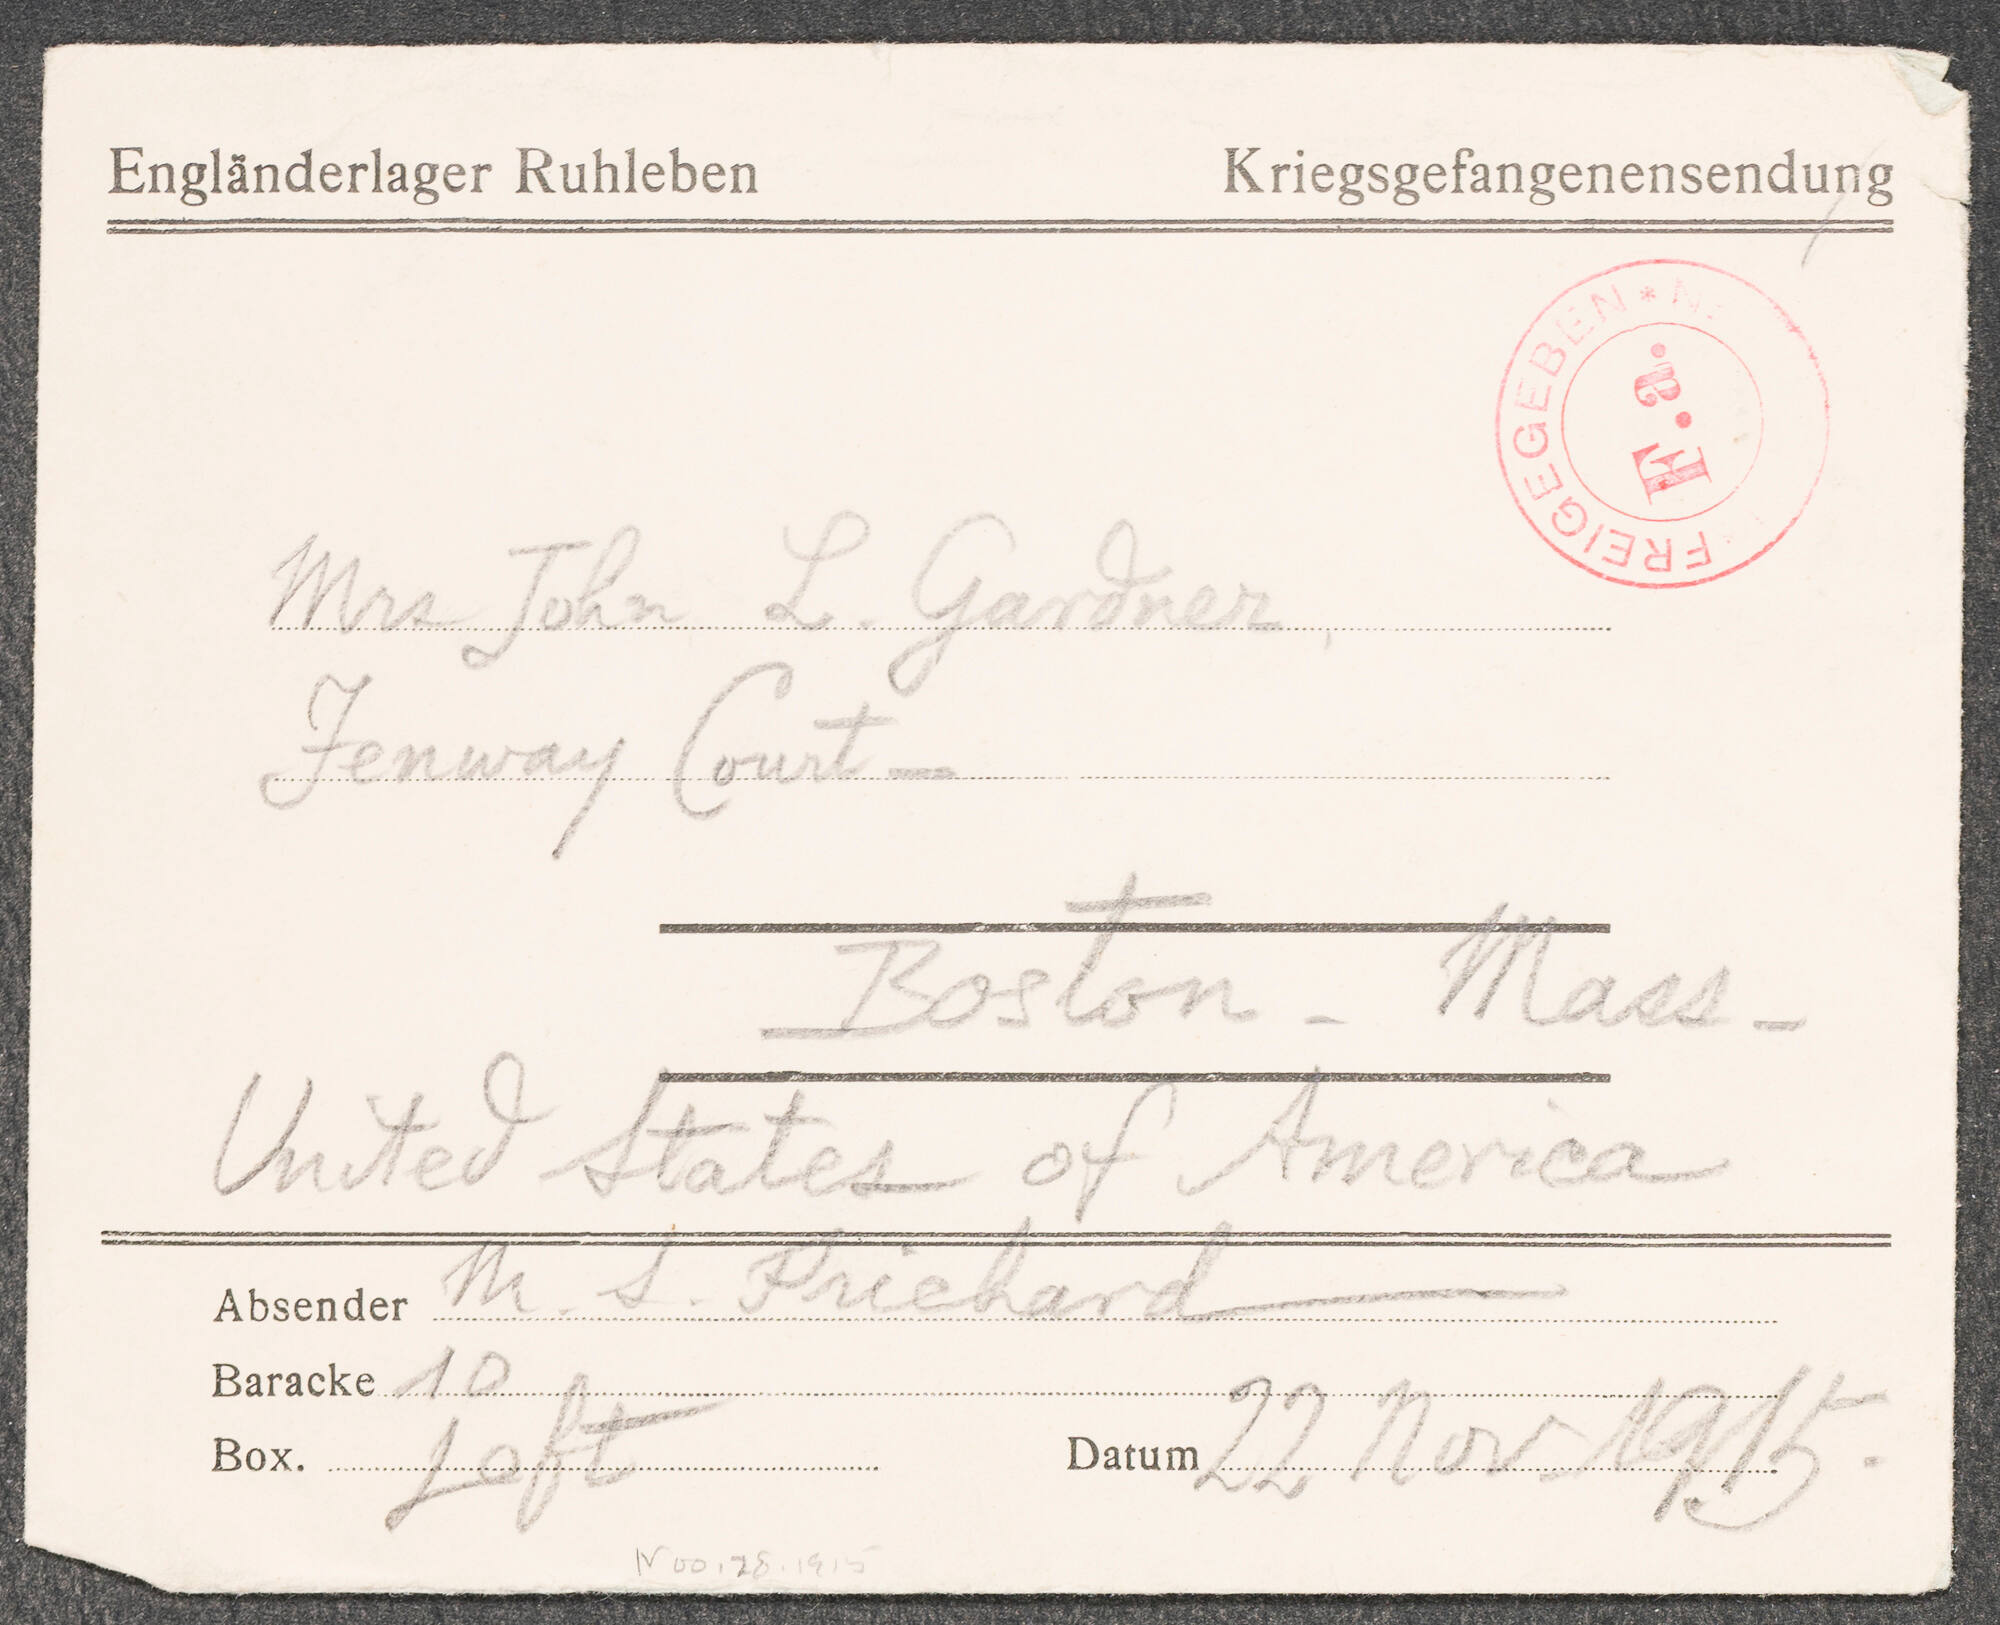 Engländerlager Ruhleben Kriegsgefangenensendung
FREIGEGEBEN *
F. a.
Mrs John L. Gardner,
Fenway Court -
Boston - Mass -
United States of America
Absender M. S. Prichard
Baracke 10
Box. Loft Datum 22 Nov. 1915.